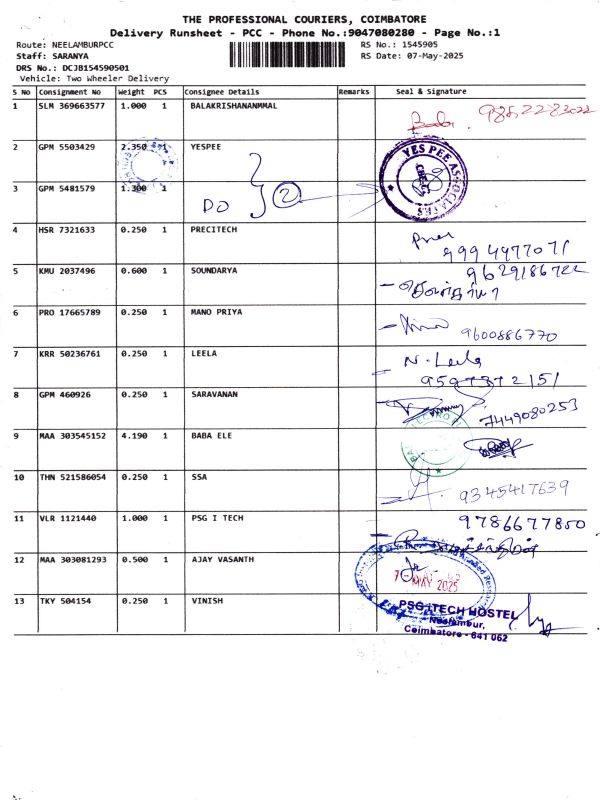 THE PROFESSIONAL COURIERS, COIMBATORE
Delivery Runsheet - PCC - Phone No.:9047080280 - Page No.:1
Route: NEELAMBURPCC
RS No.: 1545905
Staff: SARANYA
RS Date: 07-May-2025
DRS No.: DCJB154590501
Vehicle: Two Wheeler Delivery
S No Consignment No Weight PCS Consignee Details Remarks Seal & Signature
1 SLM 369663577 1.000 1 BALAKRISHANANMMAL
2 GPM 5503429 2.350 1 YESPEE
YES PEE ASSOCIATES
3 GPM 5481579 1.300 1
DO 2
4 HSR 7321633 0.250 1 PRECITECH
9994977071
5 KMU 2037496 0.600 1 SOUNDARYA
6 PRO 17665789 0.250 1 MANO PRIYA
9600886770
7 KRR 50236761 0.250 1 LEELA
N. Leela
9597372151
8 GPM 460926 0.250 1 SARAVANAN
7449080253
9 MAA 303545152 4.190 1 BABA ELE
10 THN 521586054 0.250 1 SSA
9345417639
11 VLR 1121440 1.000 1 PSG I TECH
9786677850
12 MAA 303081293 0.500 1 AJAY VASANTH
MAY 2025
13 TKY 504154 0.250 1 VINISH
PSG iTECH HOSTEL
Neelambur,
Coimbatore - 641 062